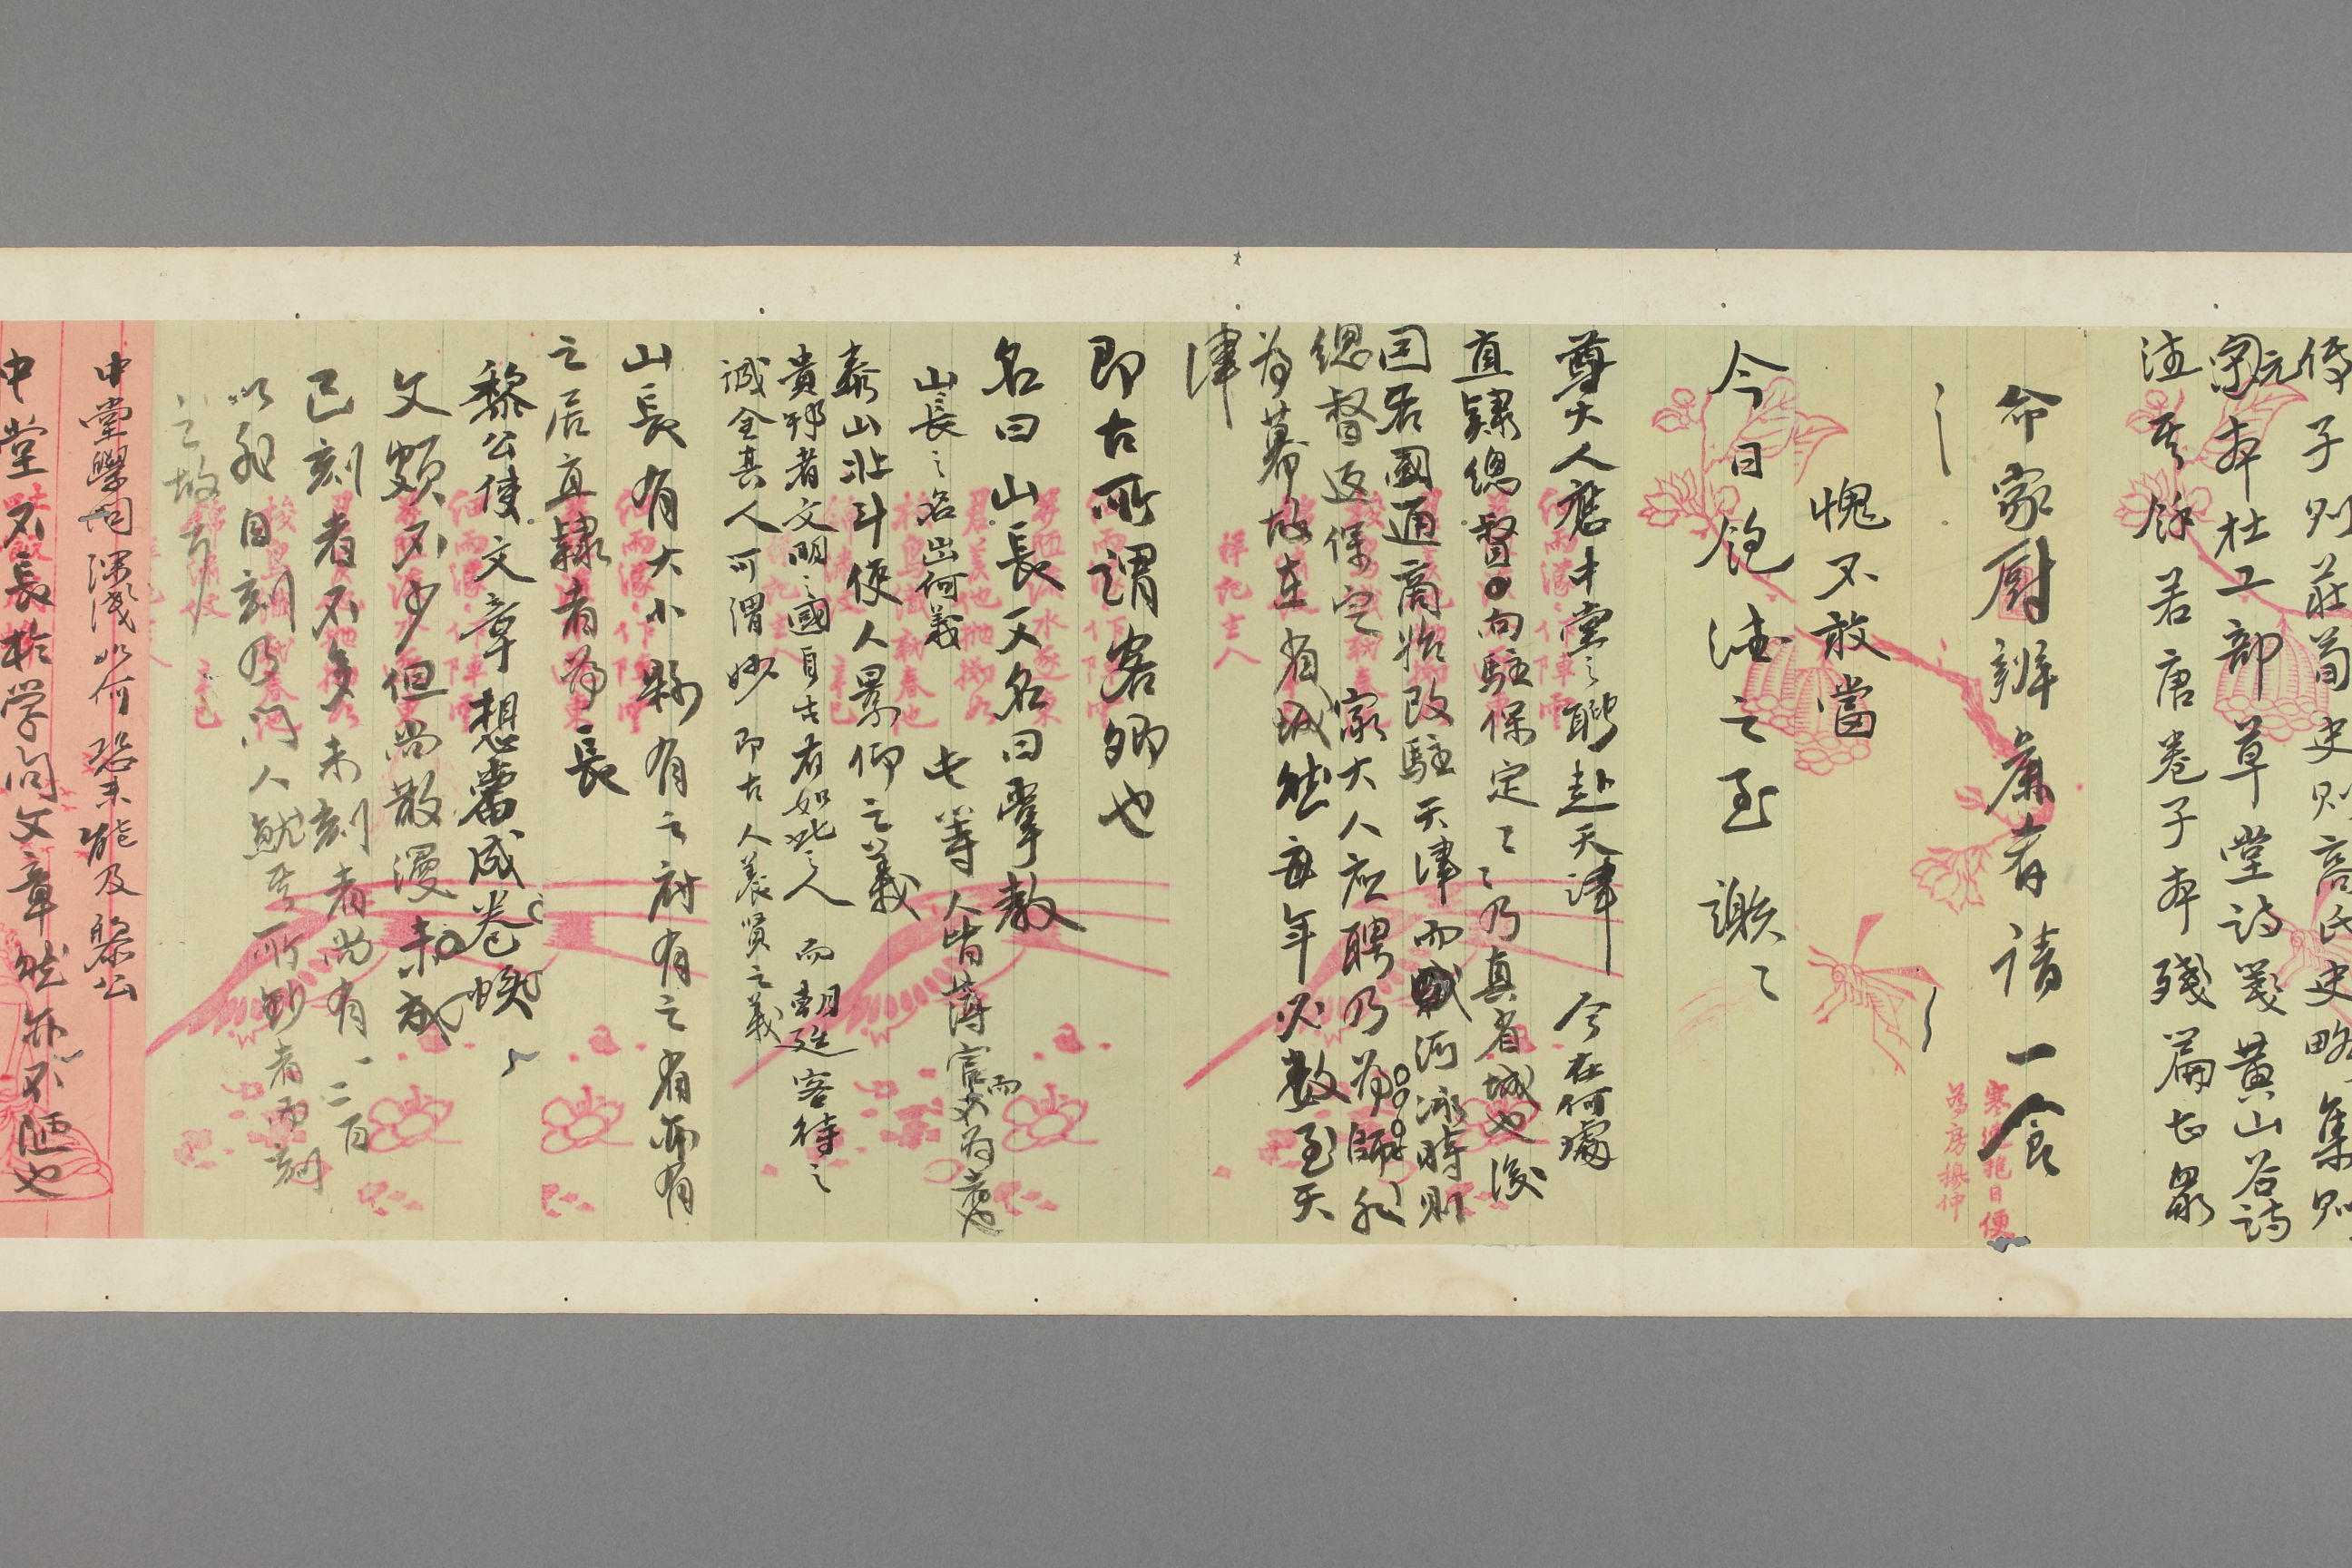 傳子則莊荀史則高氏史略集則
宋元本杜工部草堂詩箋黃山谷詩
注其餘若唐卷子本殘篇甚眾
命家厨辦粛肴請一食
愧不敢當
今日飽德之至謝〻
尊大人應中堂之聘赴天津 今在何處
直隸總督向駐保定〻〻乃真省城也後
因各國通商始改駐天津而河冰時則
總督返保定 家大人应聘乃為師
為幕故在省城然每年必數至天
津
即古所謂客卿也
名曰山長又名曰掌教
山長之名出何義 此等人皆薄官而為者
泰山北斗使人景仰之義
貴邦者文明之國自古有如此之人 而朝廷客待之
誠全其人可謂妙 即古人養賢之義
山長有大小縣有之府有之省亦有
之居直隸省為長
黎公使文章想當成卷帙
文頗不少但尚散漫未成
已刻者不多未刻者尚有一二百
以非自刻乃門人就其所鈔者而刻
之故
中堂學問深淺如何恐未能及黎公
中堂不長於学问文章然亦不陋也